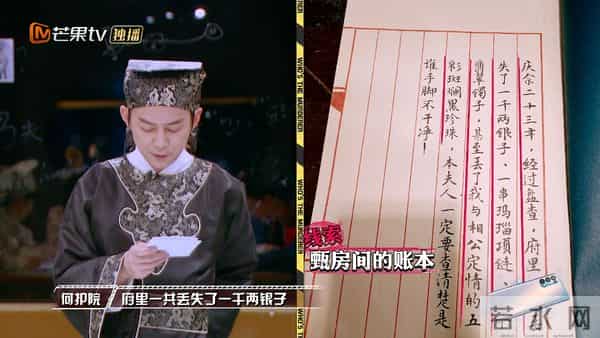 芒果tv 独播
WHO'S THE MURDERER
庆余二十三年,经过盘查,府里
失了一千两银子、一串玛瑙项链、
翡翠镯子,甚至丢了我与相公定情的五
彩斑斓黑珍珠,本夫人一定要查清楚是
谁手脚不干净!
线索
甄房间的账本
何护院 府里一共丢失了一千两银子
若水网